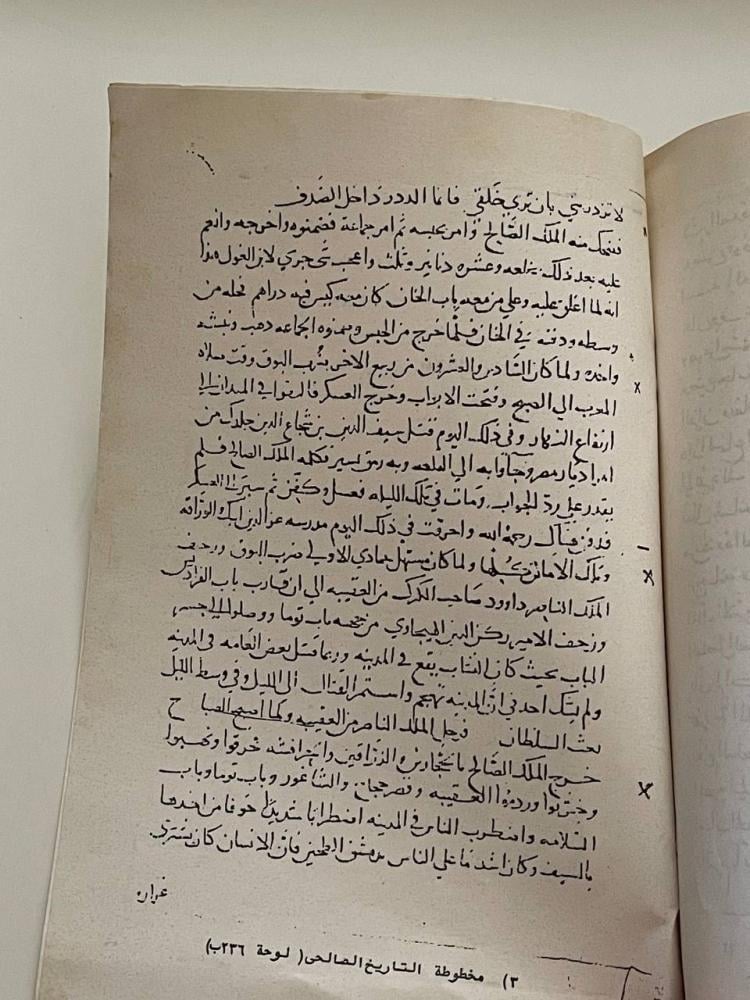 لا تزدريني بان تري خلقي فانما الدر داخل الصدف
فضحك منه الملك الصالح وامر بحبسه ثم امر جماعة فضمنوه واخرجه وانعم
عليه بعد ذلك بخلعه وعشره دنانير وثلث واعجب شي جري لابن الغول هذا
انه لما اغلق عليه وعلي من معه باب الخان كان معه كيس فيه دراهم فحله من
وسطه ودفنه في الخان فلما خرج من الحبس وضمنوه الجماعه ذهب ونبشه
واخذه ولما كان السادس والعشرون من ربيع الاخر ضرب البوق وقت صلاه
المغرب الي الصبح وفتحت الابواب وخرج العسكر فالتقوا في الميدان الي
ارتفاع النهار وفي ذلك اليوم قتل سيف الدين بن شجاع الدين جلدك من
امرا ديار مصر وجاوا به الي القلعه وبه رمق يسير فكلمه الملك الصالح فلم
يقدر علي رد الجواب ومات في تلك الليله فغسل وكفن ثم سير الي العسكر
فدفن هناك رحمه الله واحرقت في ذلك اليوم مدرسه عز الدين ايبك والوراقه
وتلك الاماكن كلها ولما كان مستهل جمادي الاولي ضرب البوق وزحف
الملك الناصر داوود صاحب الكرك من العقيبه الي ان قارب باب الفراديس
وزحف الامير ركن الدين الهيجاوي من جهه باب توما ووصلوا الي جسر
الباب بحيث كان النشاب يقع في المدينه وربما قتل بعض العامه في المدينه
ولم يشك احد في ان المدينه تهجم واستمر القتال الي الليل وفي وسط الليل
بعث السلطان فرحل الملك الناصر من العقيبه ولما اصبح الصباح
خرج الملك الصالح بالحجارين والزراقين والخرافشه فحرقوا ونهبوا
وخربوا وردموا العقيبه وقصر حجاج والشاغور وباب توما وباب
السلامه واضطرب الناس في المدينه اضطرابا شديدا خوفا من اخذها
بالسيف وكان اشد ما علي الناس بدمشق الطحين فان الانسان كان يشتري
غراره
٣) مخطوطة التاريخ الصالحى( لوحة ٢٣٦ب)